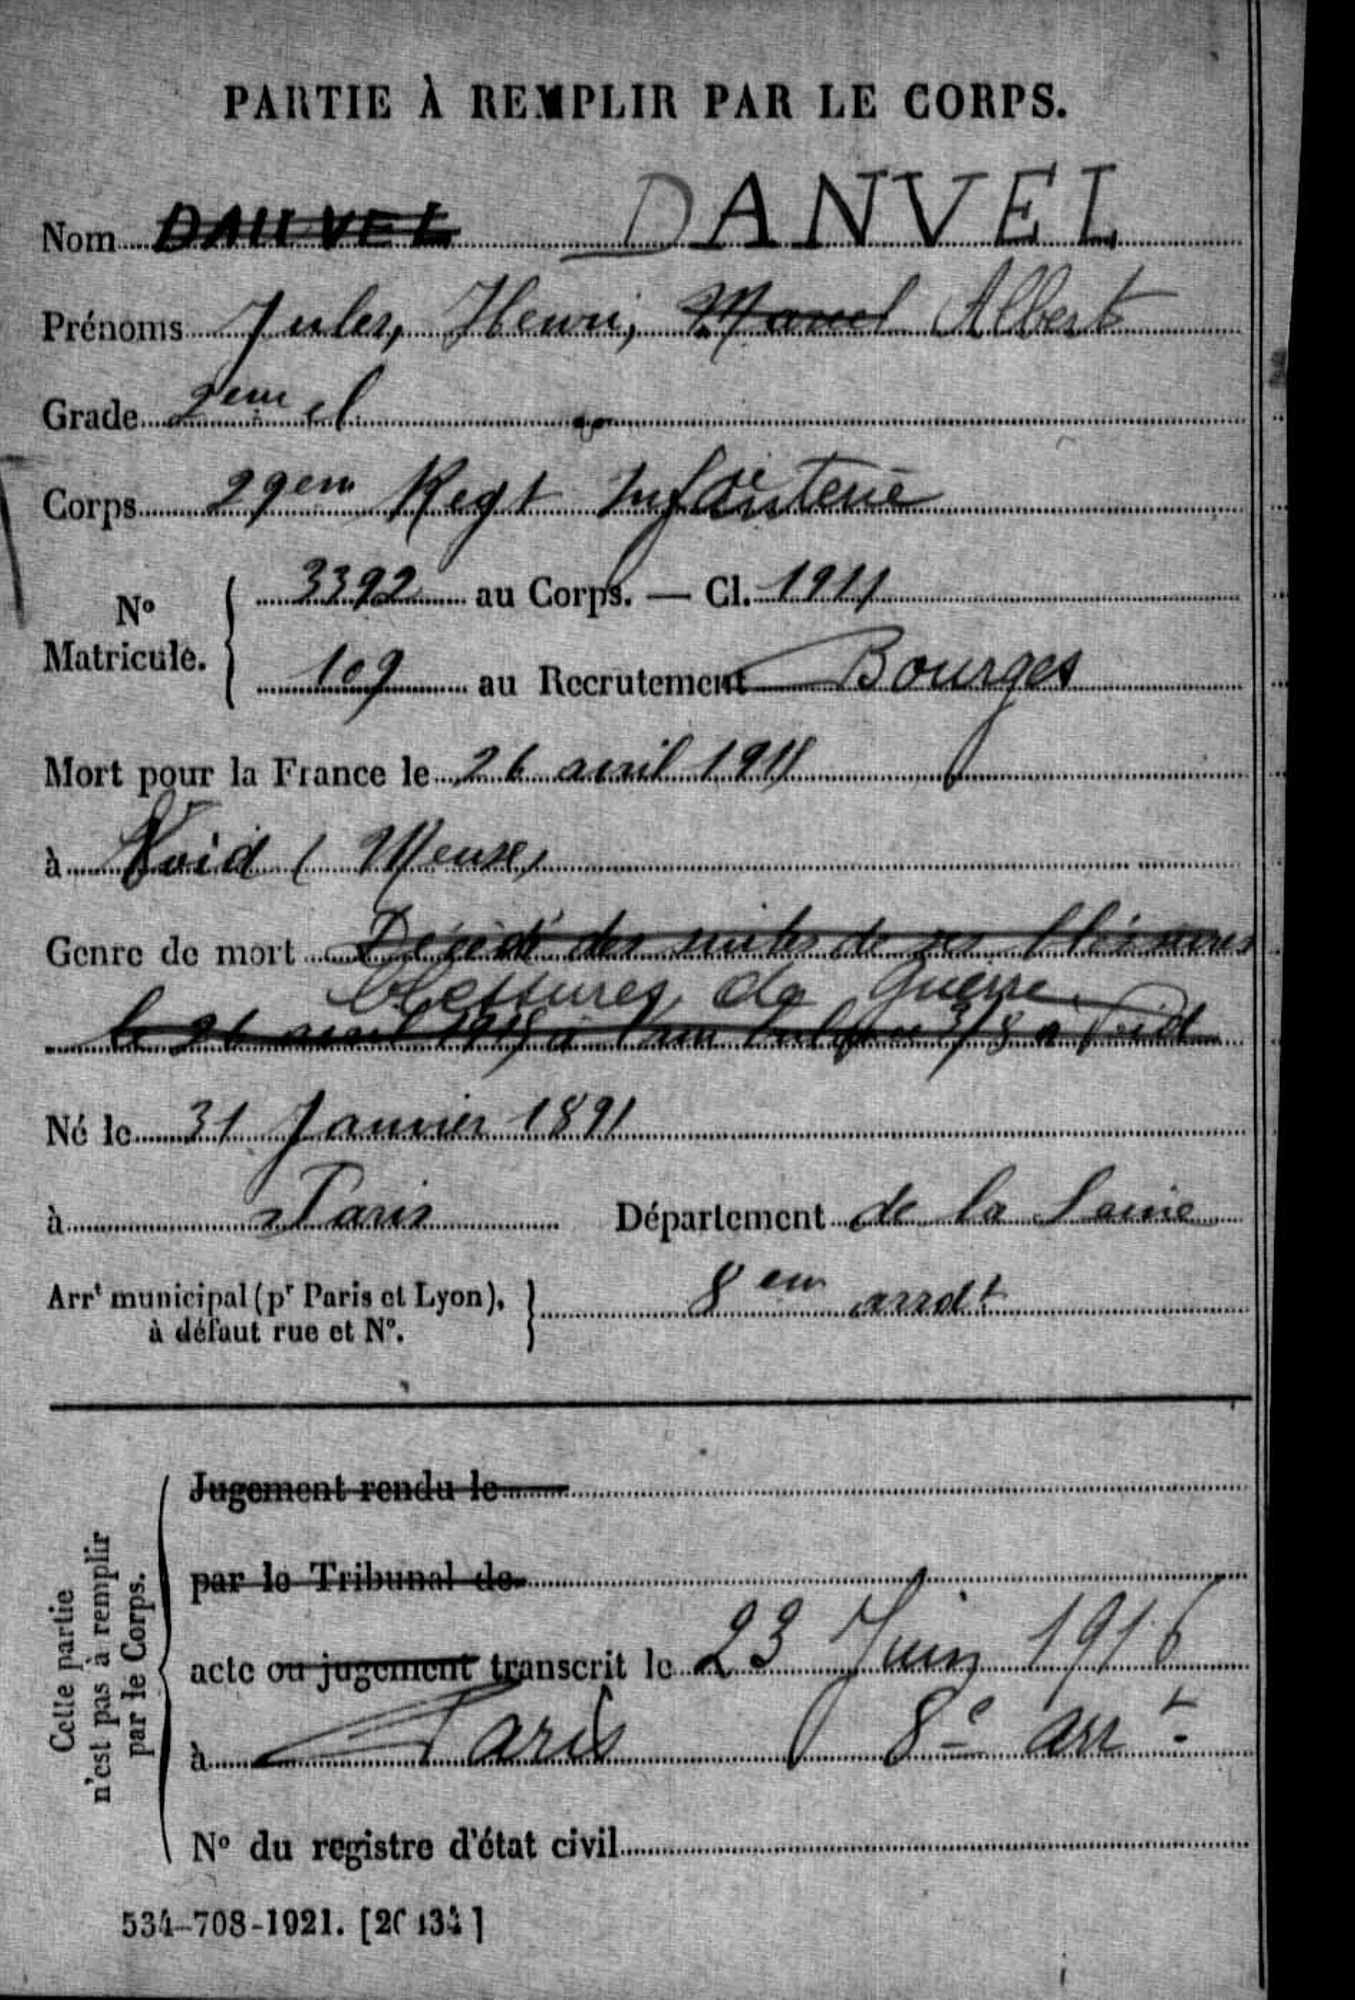 PARTIE À REMPLIR PAR LE CORPS.
Nom DAUVEL DANVEL
Prénoms Jules, Henri, Marcel Albert
Grade 2em cl
Corps 29em Regt Infanterie
No Matricule. 3392 au Corps. — Cl. 1911
109 au Recrutement Bourges
Mort pour la France le 26 avril 1915
à Void (Meuse)
Genre de mort Décédé des suites de ses blessures
blessures de Guerre
le 26 avril 1915 à 3/8 à Void
Né le 31 Janvier 1891
à Paris Département de la Seine
Arrt municipal (pr Paris et Lyon), 8em arrdt
à défaut rue et No.
Celle partie
n'est pas à remplir
par le Corps.
Jugement rendu le
par le Tribunal de
acte ou jugement transcrit le 23 Juin 1916
à Paris 8e arrt
No du registre d'état civil
534-708-1921.